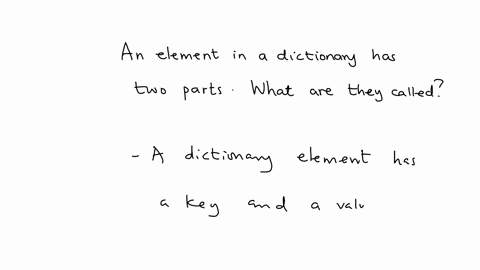 An element in a dictionary has
two parts. What are they called?
- A dictionary element has
a key and a valu